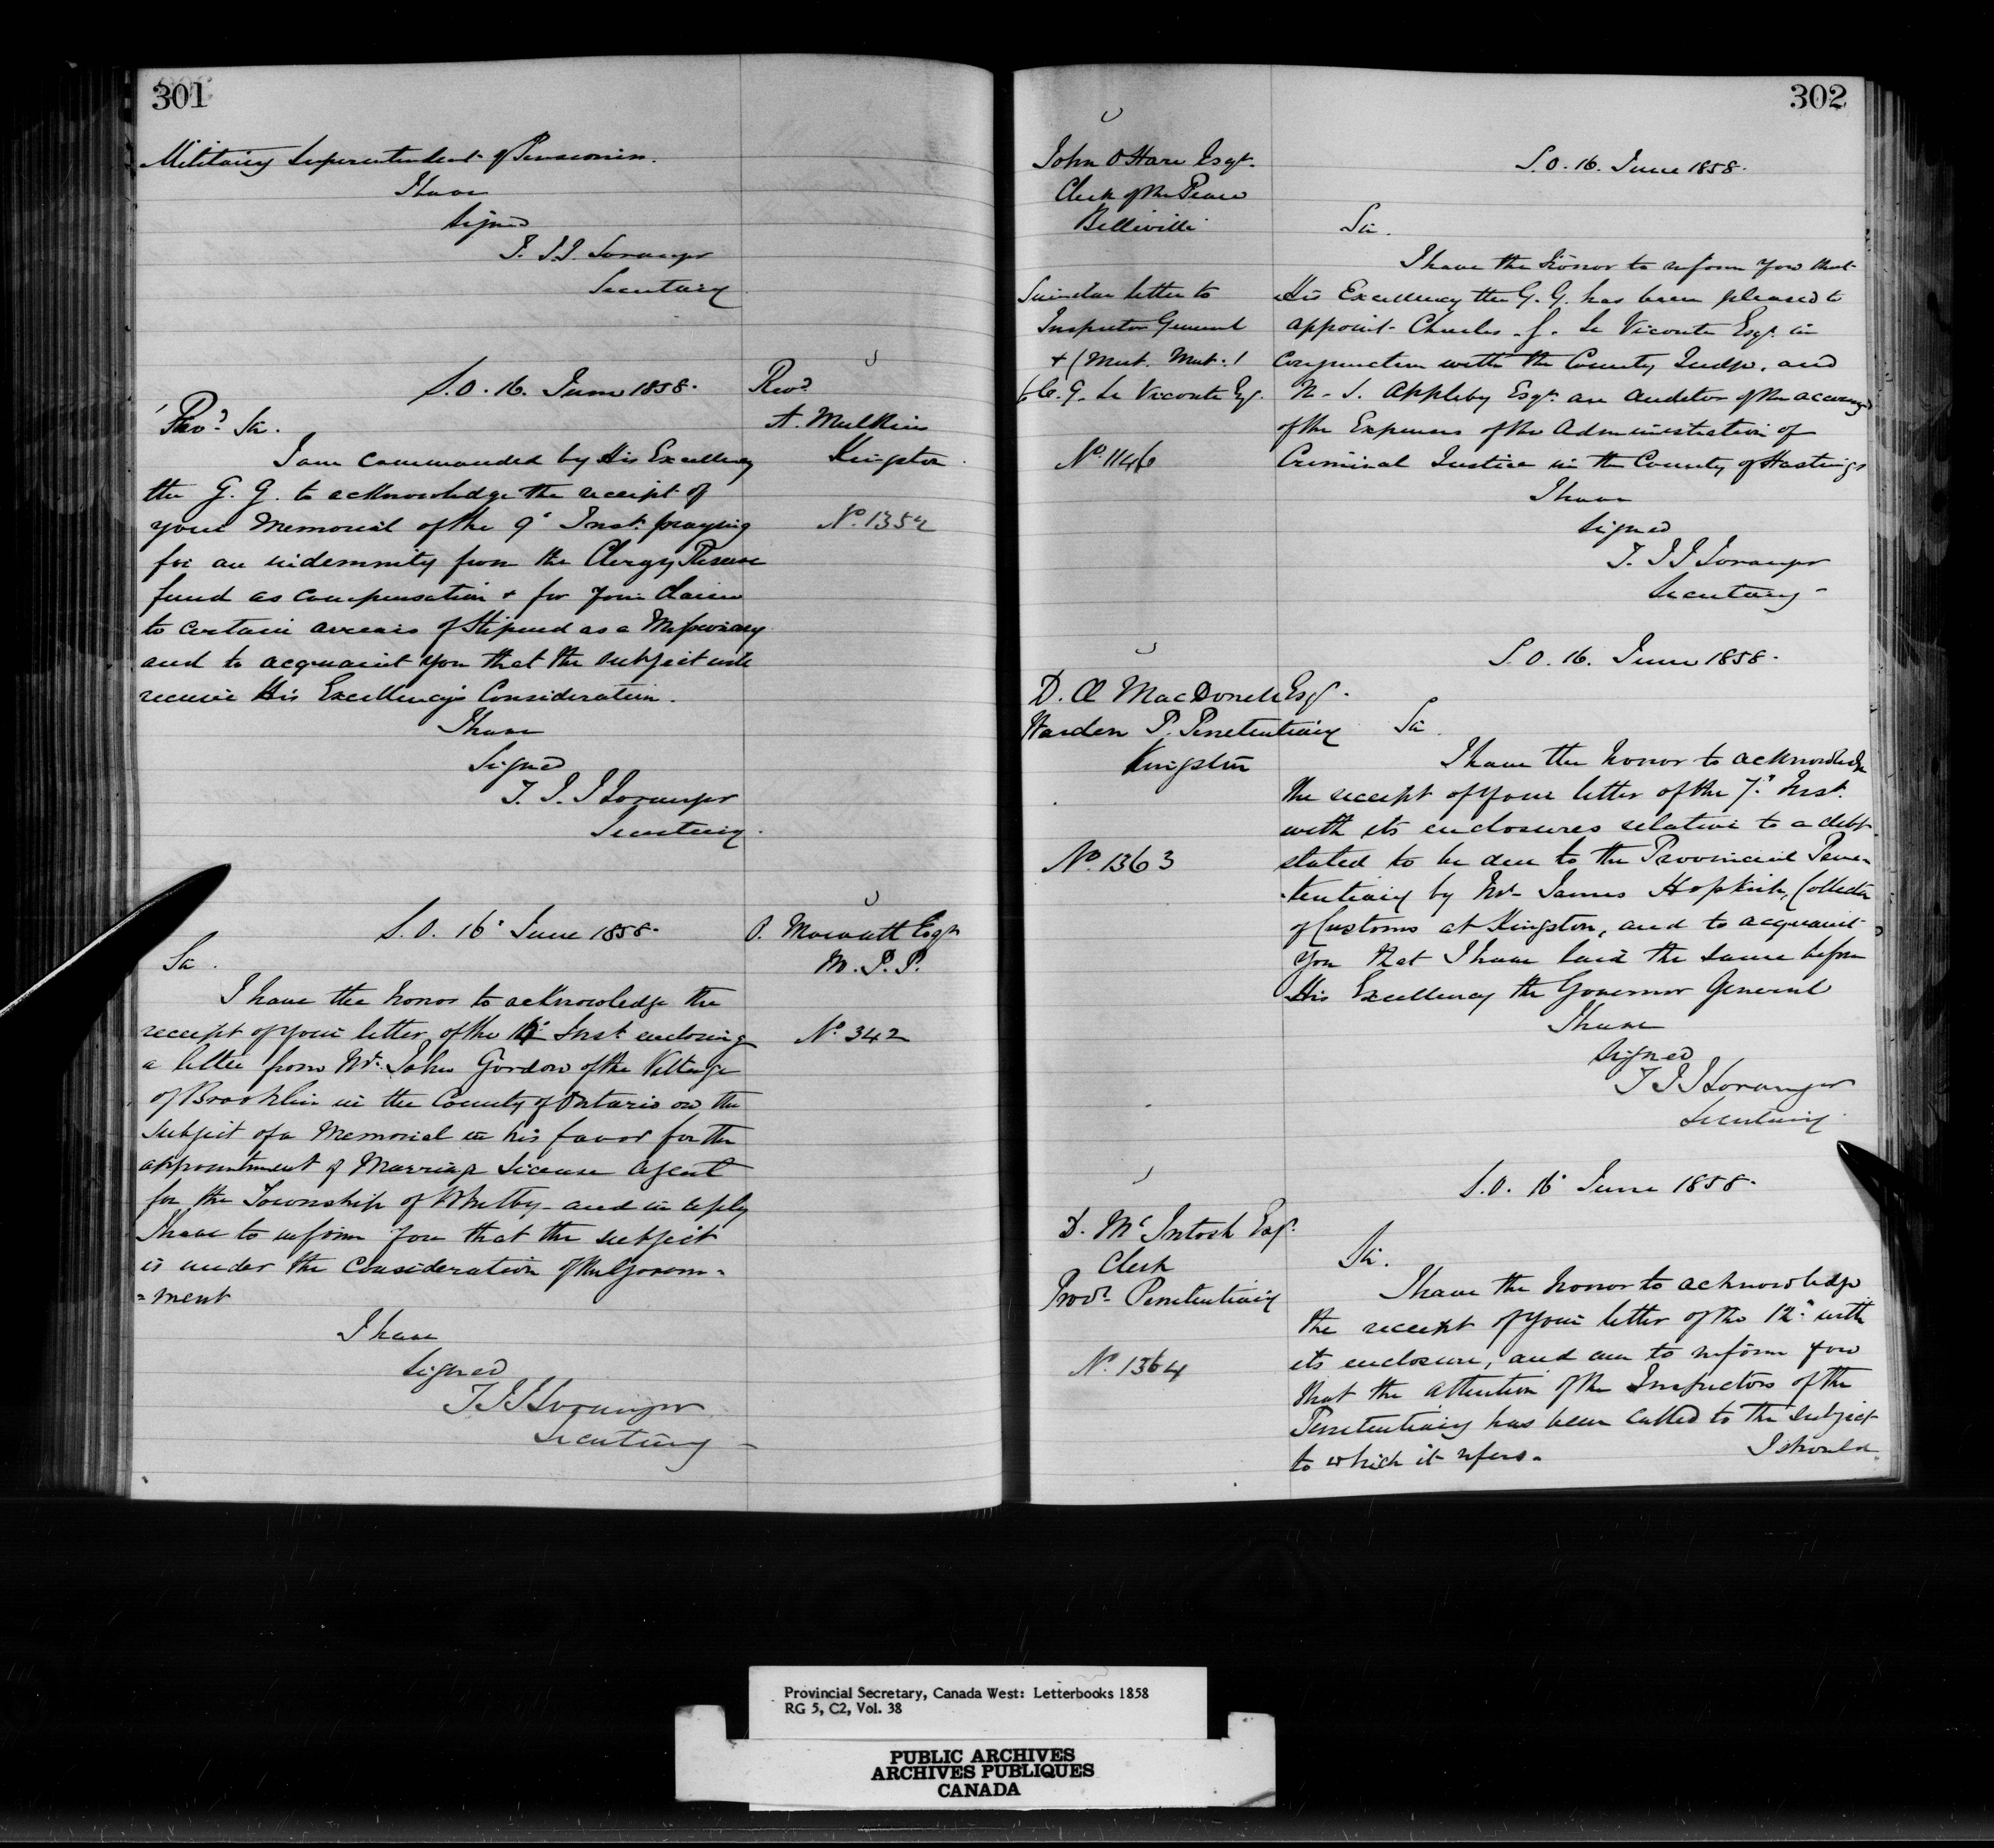 301
Military Superintendent of Pensioners.
I have
Signed
T. J. J. Loranger
Secretary
S.O. 16. June 1858.
Revd
A. Mulkins
Kingston
No. 1352
Revd Sir.
I am commanded by His Excellency
the G. G. to acknowledge the receipt of
your Memorial of the 9th Inst. praying
for an indemnity from the Clergy Reserve
fund as compensation + for your claim
to certain arrears of Stipend as a Missionary
and to acquaint you that the subject will
receive His Excellency's Consideration.
I have
Signed
T. J. J Loranger
Secretary.
S.O. 16th June 1858.
O. Mowatt Esqr
M. P. P.
No. 342
Sir.
I have the honor to acknowledge the
receipt of your letter of the Inst. enclosing
a letter from Mr. John Gordon of the Village
of Brooklin in the County of Ontario on the
subject of a Memorial in his favor for the
appointment of Marriage License Agent
for the Township of Whitby - and in reply
I have to inform you that the subject
is under the Consideration of the Govern-
=ment
I have
Signed
T J J Loranger
Secretary
302
John O'Hare Esqr.
Clerk of the Peace
Belleville
Similar letter to
Inspector General
+ (Mut. Mut.)
(C. G. Le Viconte Esqr.
No. 1146
S.O. 16. June 1858.
Sir.
I have the honor to inform you that
His Excellency the G. G. has been pleased to
appoint Charles G. Le Viconte Esqr. in
Conjunction with the County Judge, and
N. S. Appleby Esqr. an Auditor of the accounts
of the Expenses of the Administration of
Criminal Justice in the County of Hastings
I have
Signed
T. J J Loranger
Secretary -
S.O. 16. June 1858.
D. Æ MacDonell Esqr.
Warden P. Penetentiary
Kingston
No. 1363
Sir
I have the honor to acknowledge
the receipt of your letter of the 7th Inst.
with its enclosures relative to a debt
stated to be due to the Provincial Pene-
-tentiary by Mr. James Hopkirk, Collector
of Customs at Kingston, and to acquaint
you that I have laid the same before
His Excellency the Governor General
I have
Signed
T J J Loranger
Secretary.
S.O. 16th June 1858.
D. Mc Intosh Esqr.
Clerk
Provl. Penetentiary
No. 1364
Sir.
I have the honor to acknowledge
the receipt of your letter of the 12th with
its enclosure, and am to inform you
that the attention of the Inspectors of the
Penetentiary has been called to the subject
to which it refers.
I should
Provincial Secretary, Canada West: Letterbooks 1858
RG 5, C2, Vol. 38
PUBLIC ARCHIVES
ARCHIVES PUBLIQUES
CANADA